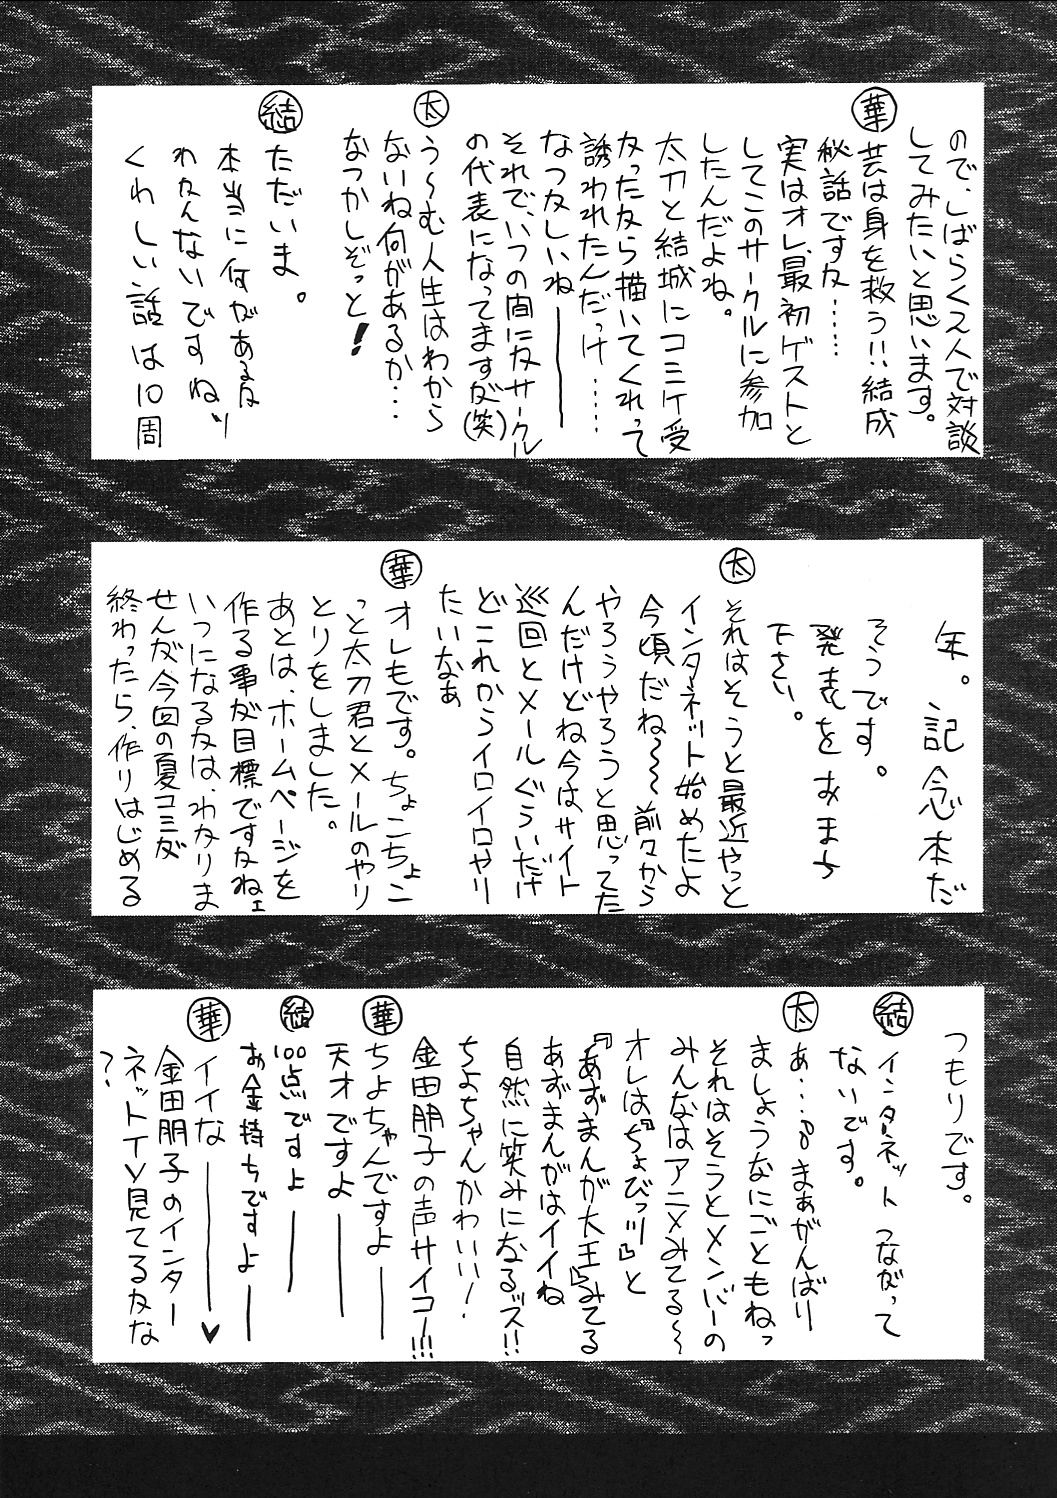 ので、しばらく2人で対談
してみたいと思います。
華 芸は身を救う!!結成
秘話ですか……
実はオレ、最初ゲストと
してこのサークルに参加
したんだよね。
太刀と結城にコミケ受
かったから描いてくれって
誘われたんだっけ……
なつかしいね———
それで、いつの間にかサークル
の代表になってますが(笑)
太 う〜む人生はわから
ないね何があるか…
なつかしぞっと!
結 ただいま。
本当に何があるか
わかんないですね〜
くわしい話は10周
年。記念本だ
そうです。
発表をおまち
下さい。
太 それはそうと最近やっと
インターネット始めたよ
今頃だね〜〜前々から
やろうやろうと思ってた
んだけどね今はサイト
巡回とメールぐらいだけ
どこれからイロイロやり
たいなぁ
華 オレもです。ちょこちょこ
っと太刀君とメールのやり
とりをしました。
あとは、ホームページを
作る事が目標ですかねェ
いつになるかは、わかりま
せんが今回の夏コミが
終わったら、作りはじめる
つもりです。
結 インターネットつながって
ないです。
太 あ…まぁがんばり
ましょうなにごともねっ
それはそうとメンバーの
みんなはアニメみてる〜
オレは『ちょびッツ』と
『あずまんが大王』みてる
あずまんがはイイね
自然に笑みになるッス!!
ちよちゃんかわいい!
金田朋子の声サイコー!!!
華 ちよちゃんですよ———
天才ですよ———
結 100点ですよ———
お金持ちですよ———
華 イイな———♥
金田朋子のインター
ネットTV見てるかな
?